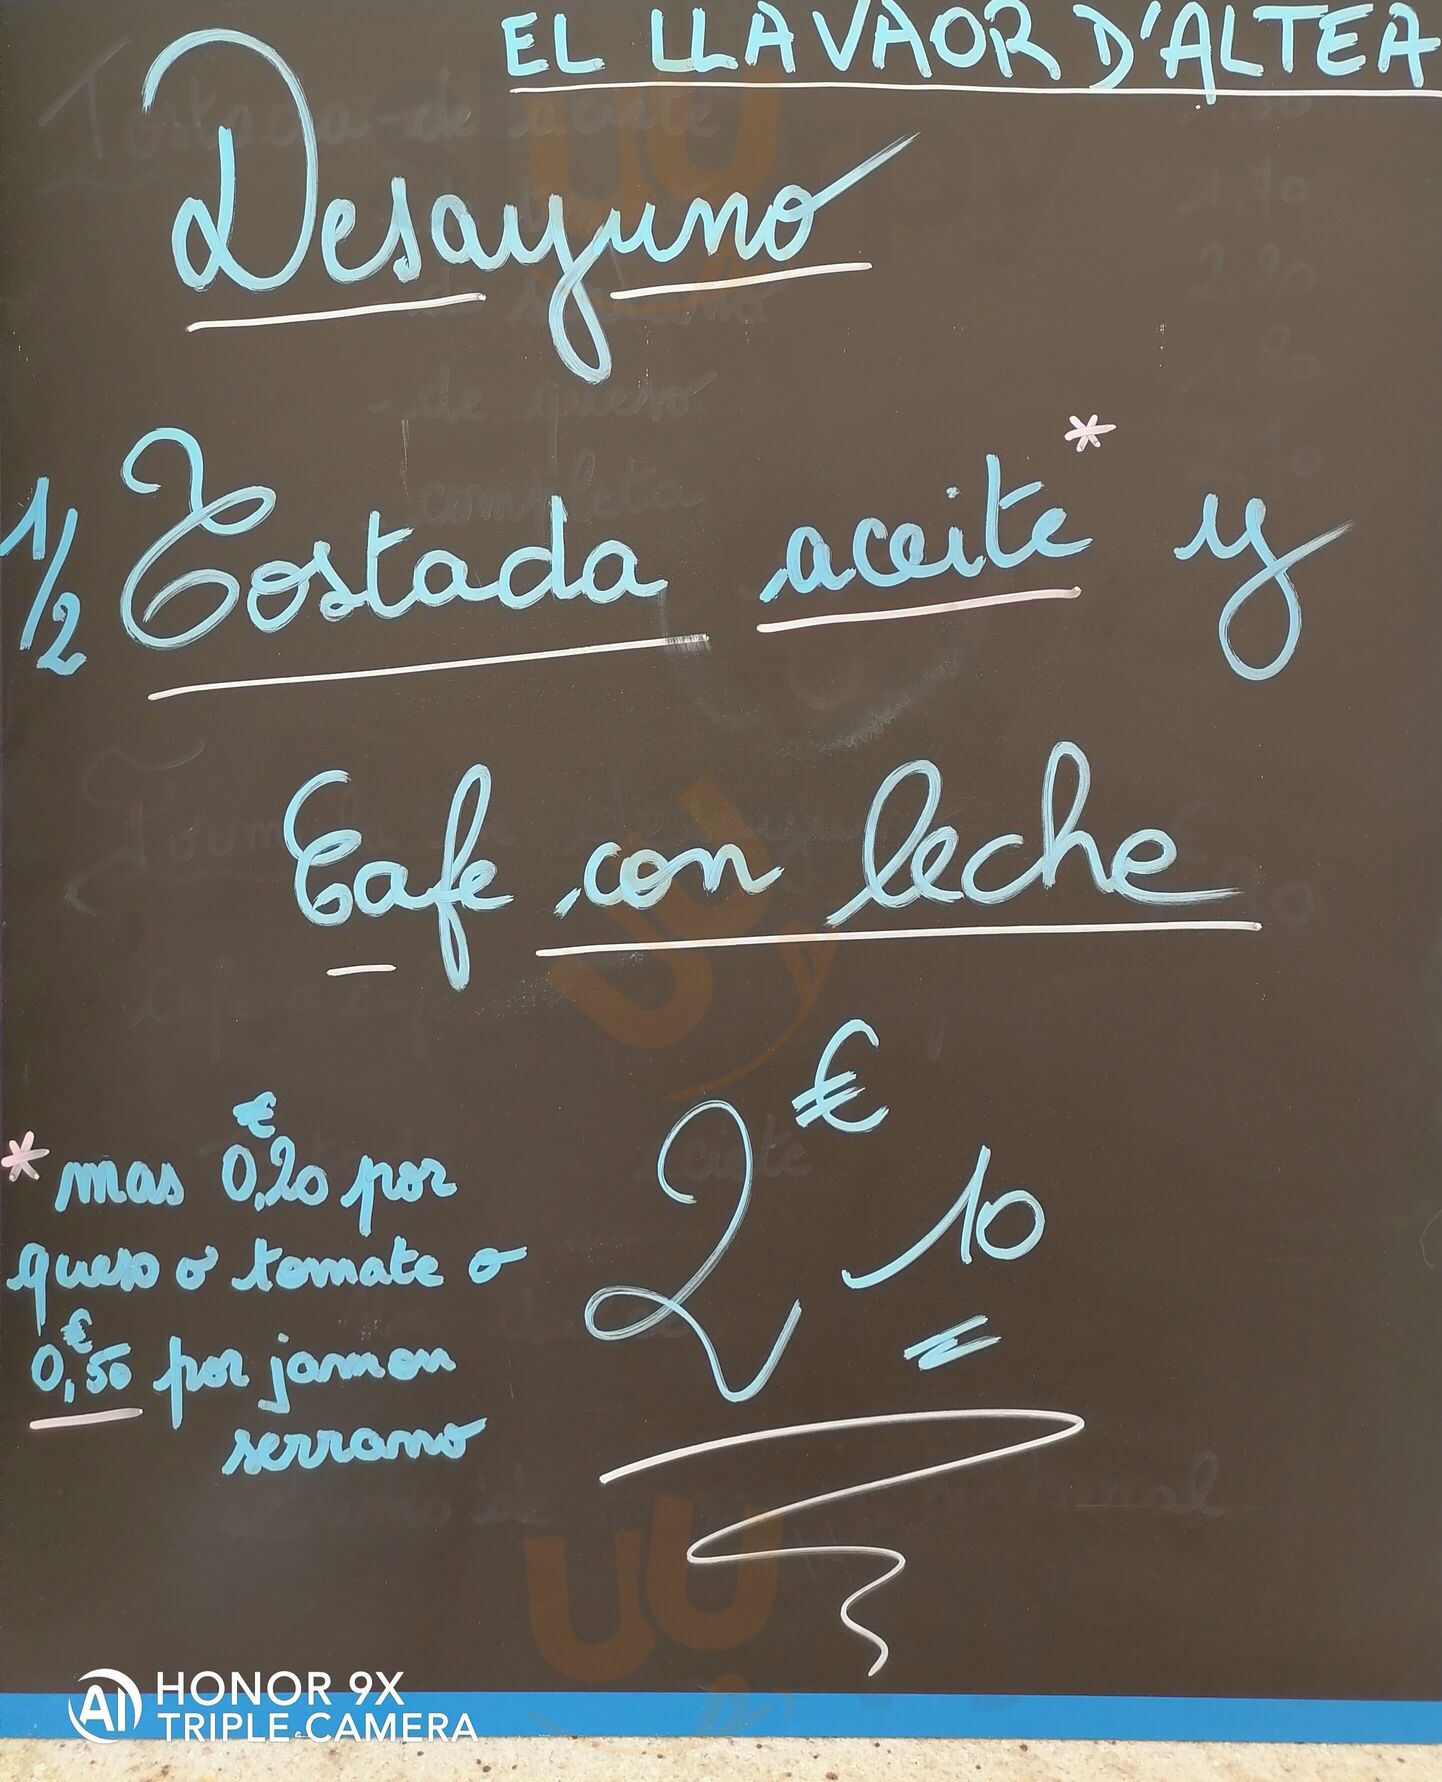 EL LLAVAOR D'ALTEA
Desayuno
1/2 Tostada aceite* y
Cafe con leche
2€,10
* mas 0€,20 por
queso o tomate o
0€,50 por jamon
serrano
AI HONOR 9X
TRIPLE CAMERA